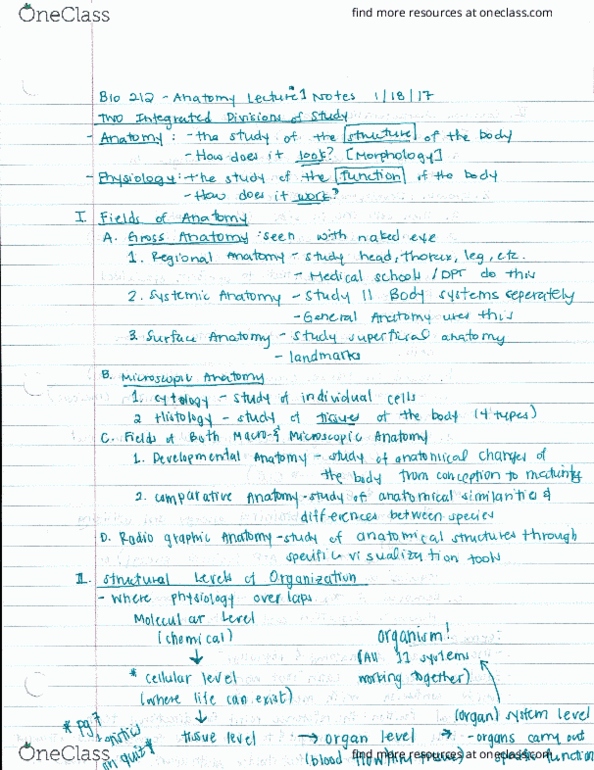 OneClass
find more resources at oneclass.com
Bio 212 - Anatomy Lecture 1 Notes 1/18/17
Two Integrated Divisions of Study
- Anatomy: - the study of the structure of the body
- How does it look? [Morphology]
- Physiology: - the study of the function of the body
- How does it work?
I. Fields of Anatomy
A. Gross Anatomy: seen with naked eye
1. Regional Anatomy - study head, thorax, leg, etc.
- Medical schools / DPT do this
2. Systemic Anatomy - Study 11 Body systems seperately
- General Anatomy uses this
3. Surface Anatomy - study superficial anatomy
- landmarks
B. Microscopic Anatomy
1. cytology - study of individual cells
2 Histology - study of tissues of the body (4 types)
C. Fields of Both Macro- & Microscopic Anatomy
1. Developmental Anatomy - study of anatomical changes of
the body from conception to maturity
2. comparative Anatomy - study of anatomical similarities &
differences between species
D. Radio graphic Anatomy - study of anatomical structures through
specific visualization tools
II. Structural Levels of Organization
- Where physiology over laps
Molecular Level
(chemical)
organism!
(All 11 systems
working together)
* cellular level
(where life can exist)
(organ) system level
* pg 7
on quiz *
tissue level → organ level → - organs carry out
(blood
specific function
OneClass
find more resources at oneclass.com